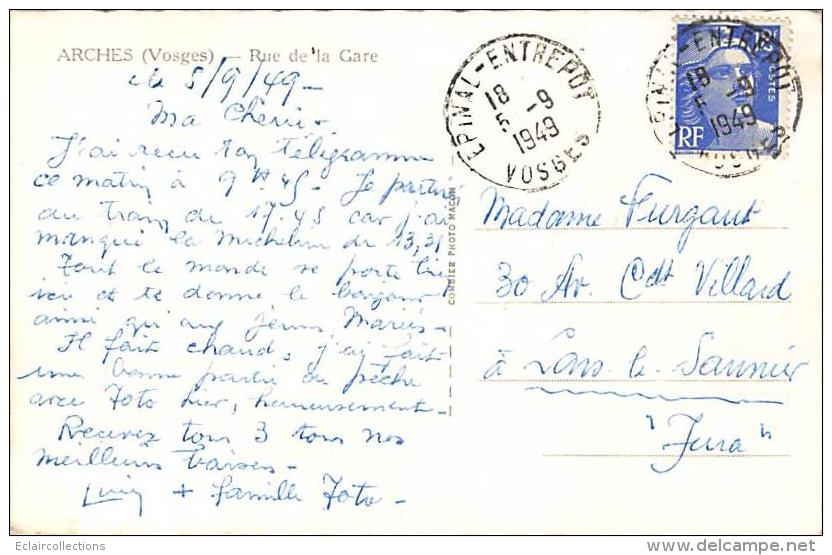 ARCHES (Vosges) — Rue de la Gare
le 5/9/49 -
Ma Chérie.
J'ai reçu ton télégramme
ce matin à 9H.45. Je partirai
au train de 17.45 car j'ai
manqué la Micheline de 13,31
Tout le monde se porte bien
ici et te donne le bonjour
ainsi qu'aux jeunes Mariés -
Il fait chaud, j'ai fait
une bonne partie de pêche
avec Toto hier, heureusement -
Recevez tous 3 tous nos
meilleurs baisers -
+ famille Toto -
COMBIER PHOTO MACON
EPINAL-ENTREPOT
18
5 -9
1949
VOSGES
EPINAL-ENTREPOT
18
5 -9
1949
VOSGES
POSTES
RF
Madame Furgaut
30 Av. Cdt Villard
à Lons-le-Saunier
"Jura"
Eclaircollections
www.delcampe.net